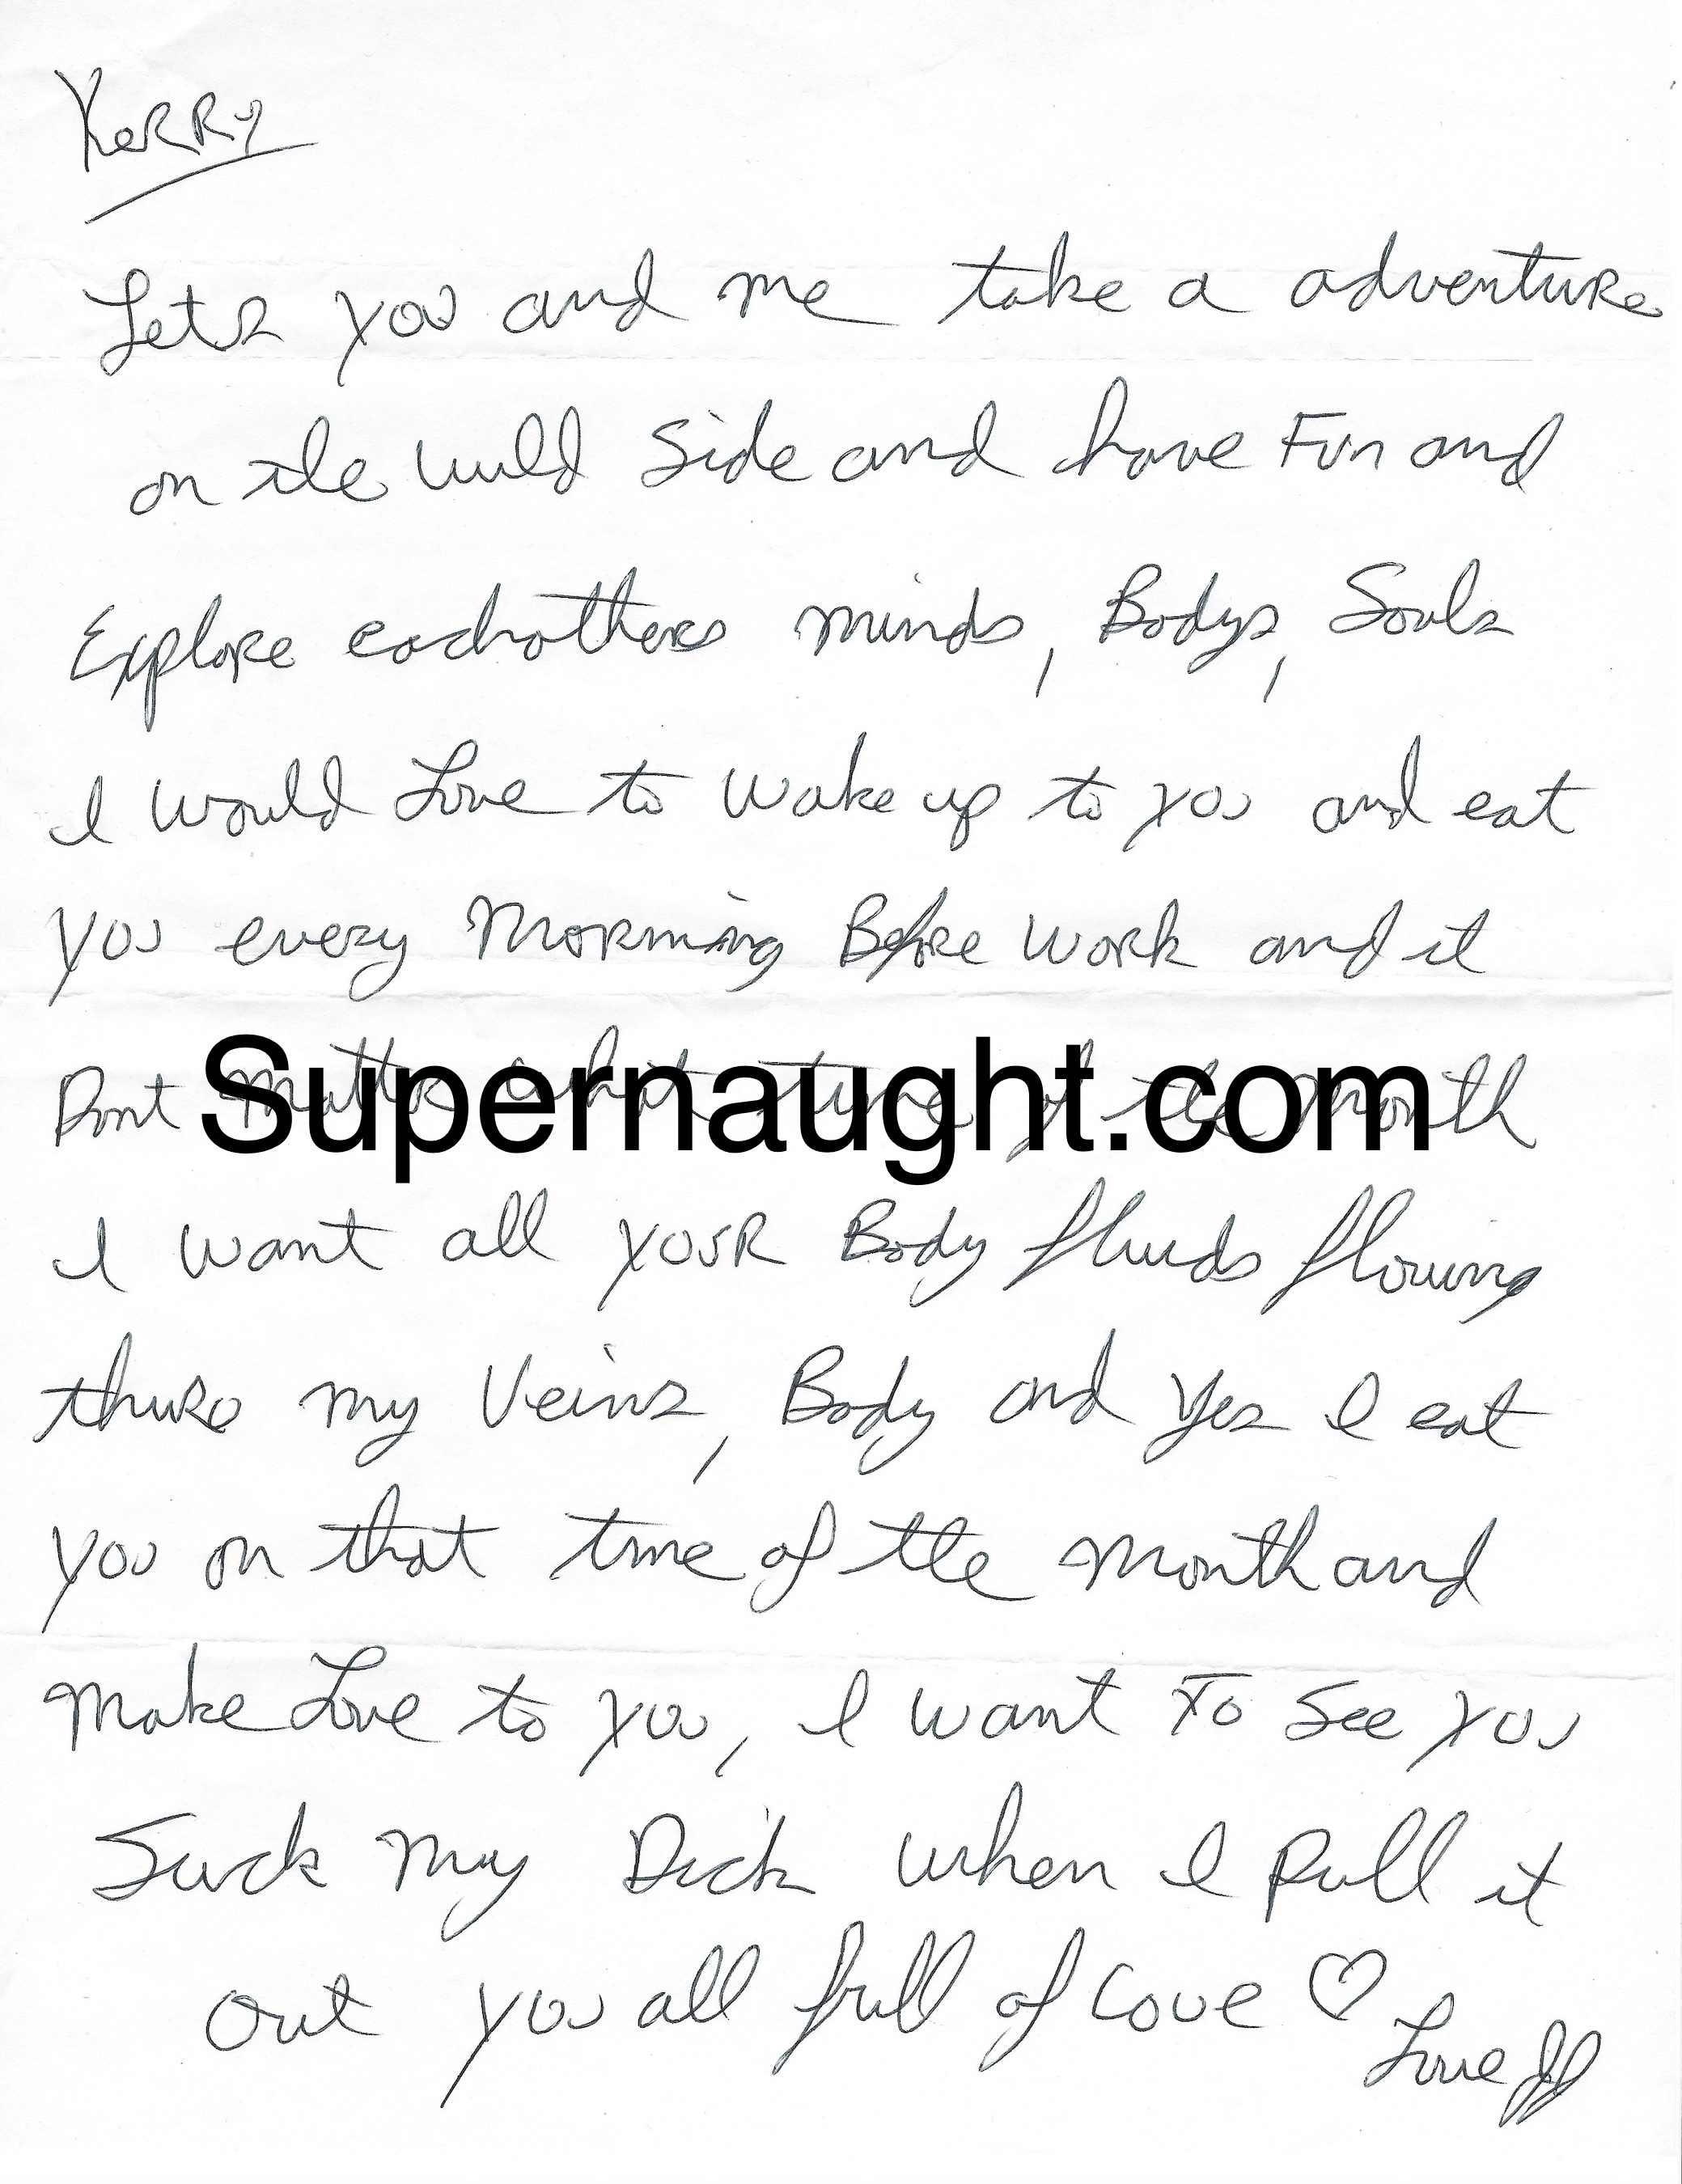 Kerry
Lets you and me take a adventure
on the wild side and have Fun and
Explore eachothers minds, Bodys, Souls
I would Love to wake up to you and eat
you every Morning Before work and it
Dont Matter what time of the Month
Supernaught.com
I want all your Body fluids flowing
thuro my Veins, Body and Yes I eat
you on that time of the Month and
Make Love to you, I want To See you
Suck My Dick when I pull it
out you all full of Love ♡
Love JJ